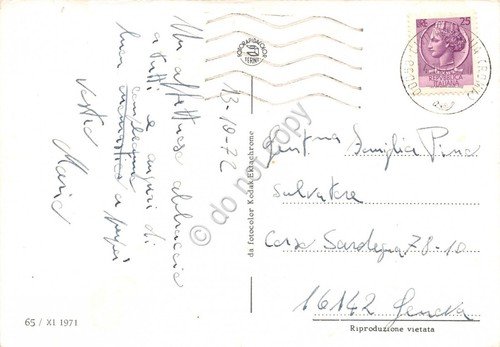 Un affettuoso abbraccio
a tutti e auguri di
buon compleanno
onomastico a papà
vostra
Maria
13-10-72
FOTORAPIDACOLOR
TERNI
25
da fotocolor Kodak Ektachrome
Gent.ma Famiglia Pina
Salvatore
Corso Sardegna 78-10
16142 Genova
65 / XI 1971
Riproduzione vietata
do not copy